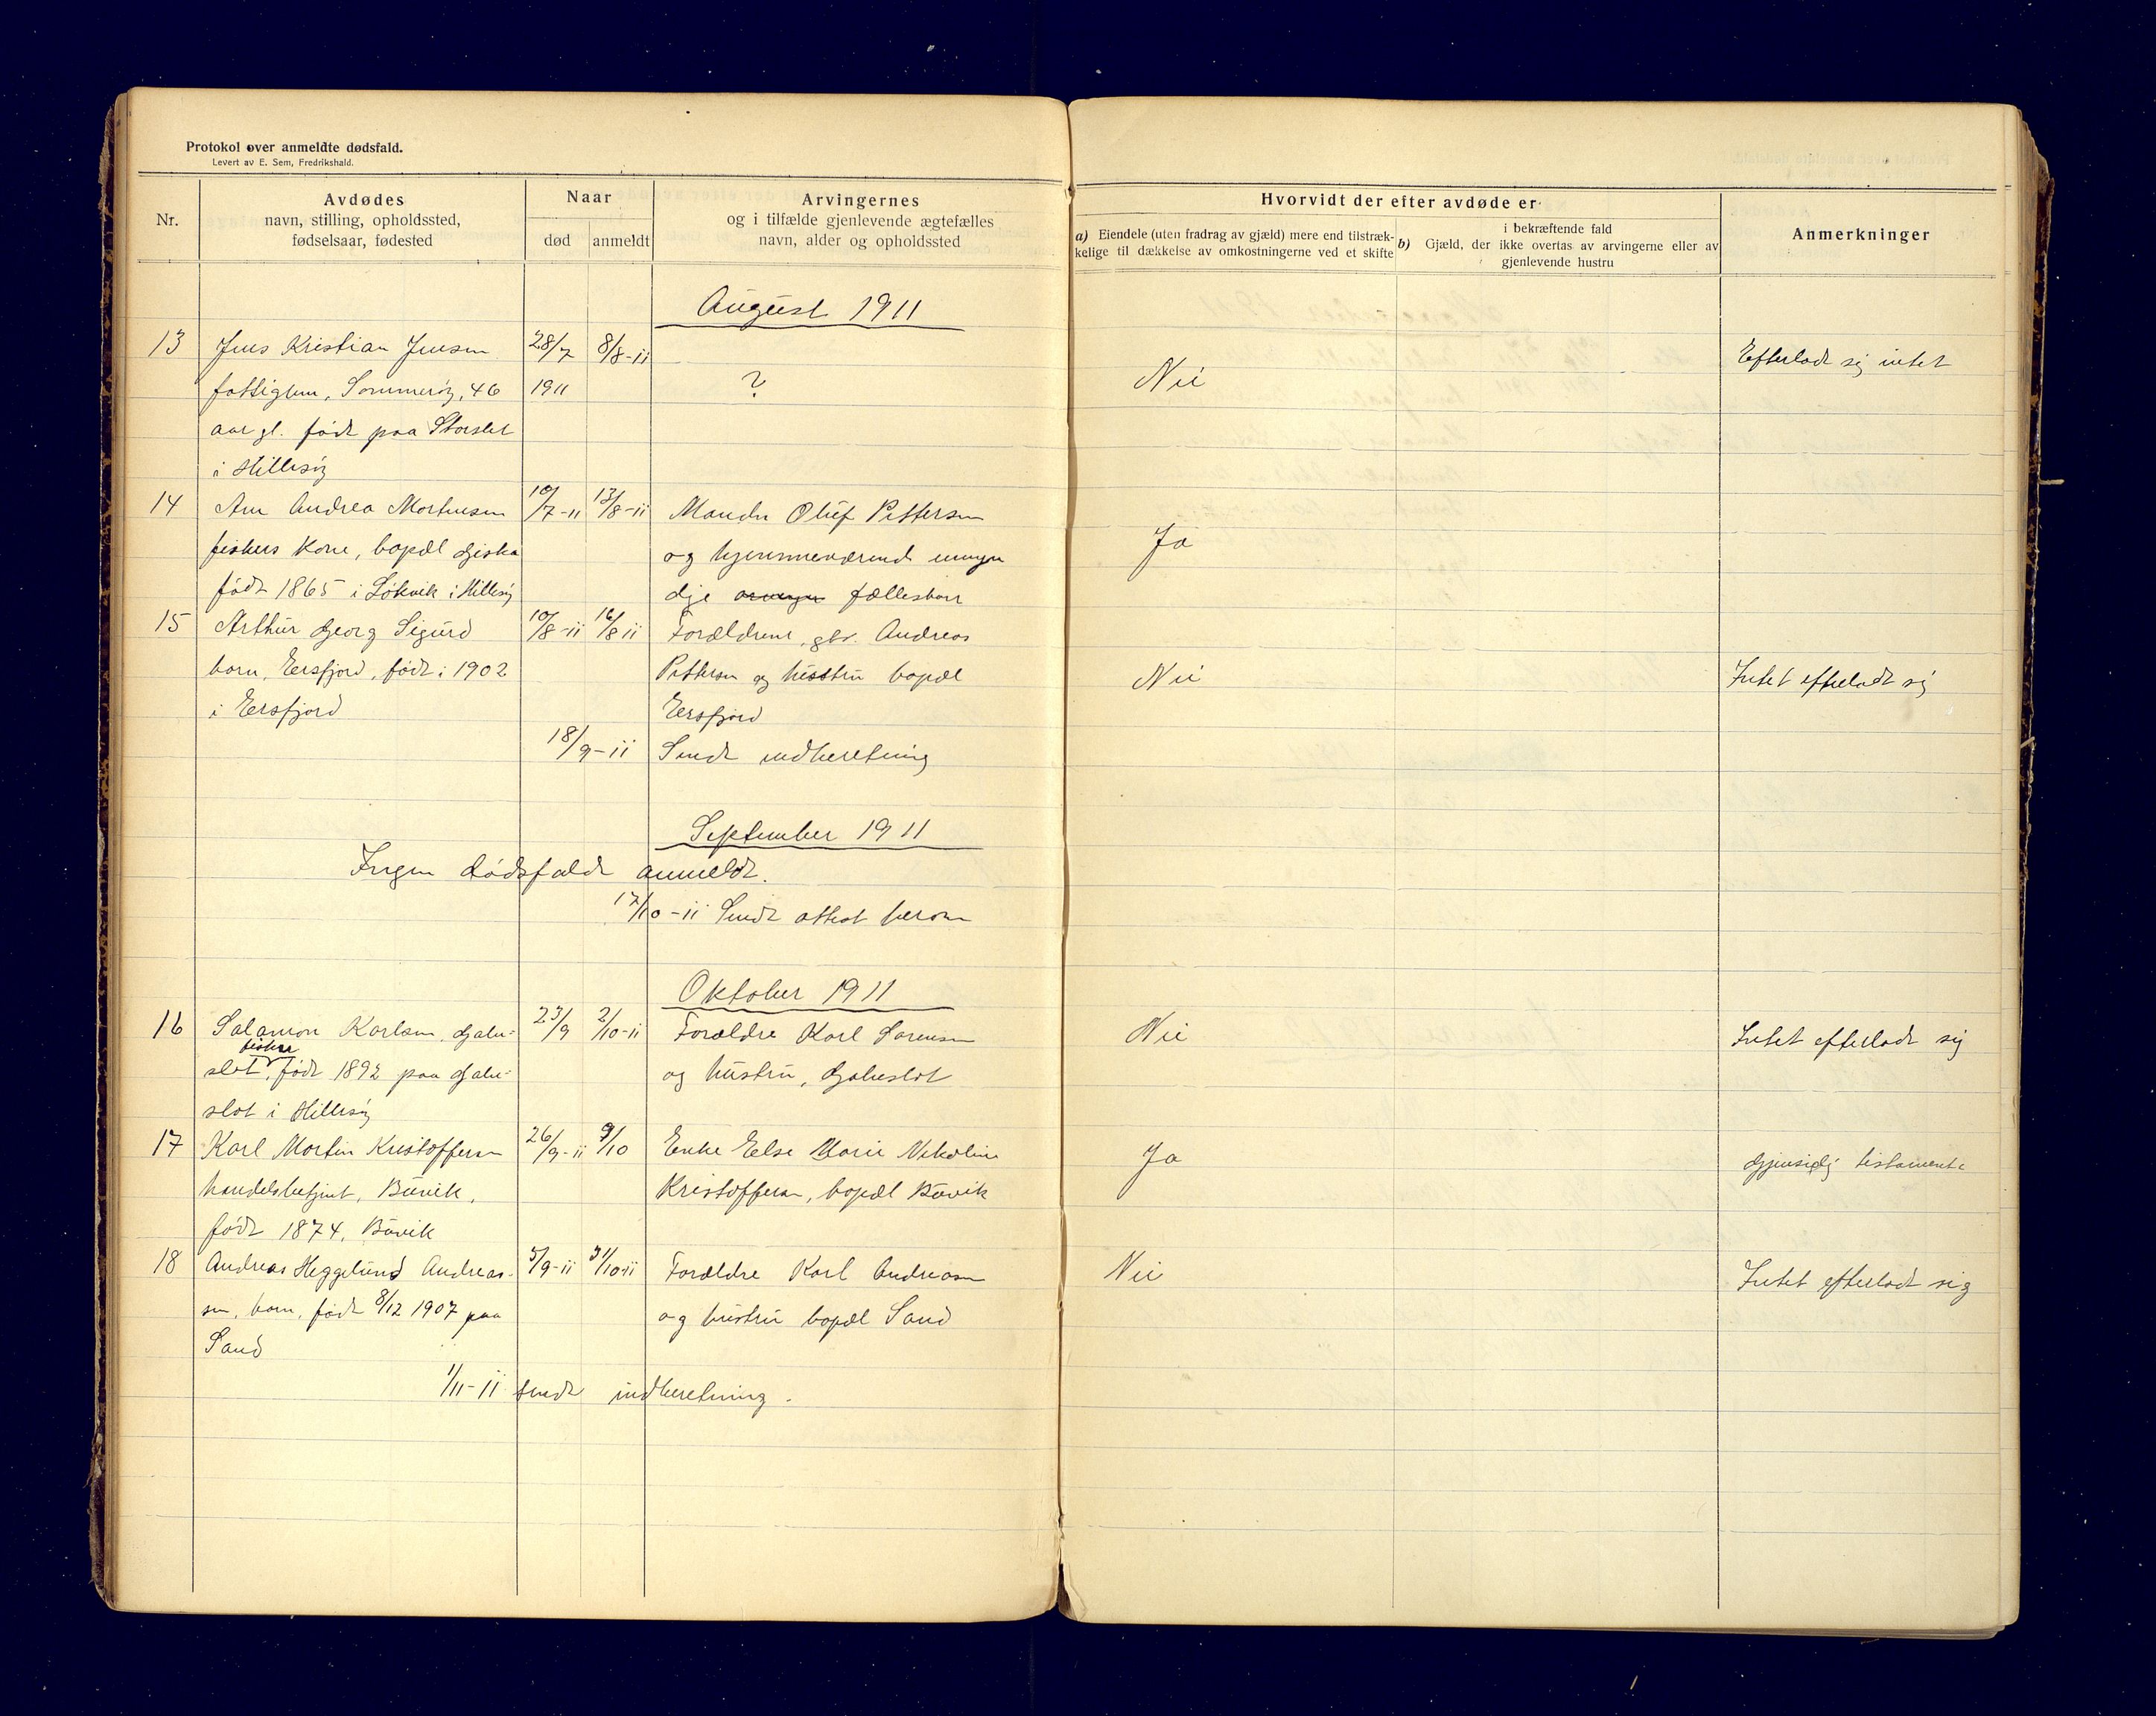 Protokol over anmeldte dødsfald.
Levert av E. Sem, Fredrikshald.
Nr.
Avdødes
navn, stilling, opholdssted,
fødselsaar, fødested
Naar
død
anmeldt
Arvingernes
og i tilfælde gjenlevende ægtefælles
navn, alder og opholdssted
Hvorvidt der efter avdøde er
a) Eiendele (uten fradrag av gjæld) mere end tilstræk-
kelige til dækkelse av omkostningerne ved et skifte
i bekræftende fald
b) Gjæld, der ikke overtas av arvingerne eller av
gjenlevende hustru
Anmerkninger
August 1911
13 Jens Kristian Jensen 28/7 8/8-11 Efterladt sig intet
fattiglem, Sommerøy, 46 1911 ? Nei
aar gl. født paa Storslet
i Hillesøy
14 Ane Andrea Mortensen 10/7-11 13/8-11 Manden Oluf Pettersen
fiskers kone, bopæl og hjemmeværende umyn Ja
født 1865 i Løkvik i Hillesøy dige fællesbarn
15 Arthur Georg Sigurd 10/8-11 16/8 11 Forældrene, gbr. Andreas
barn, Eersfjord, født i 1902 Pettersen og hustru bopæl Nei Intet efterladt sig
i Eersfjord Eersfjord
18/9-11 Sendt indberetning
September 1911
Ingen dødsfald anmeldt.
17/10-11 Sendt attest herom
Oktober 1911
16 Salamon Karlsen, Gale- 23/9 2/10-11 Forældre Karl Sørensen Nei Intet efterladt sig
fisker
slot, født 1892 paa Gale- og hustru, Galeslot
slot i Hillesøy
17 Karl Martin Kristoffersen 26/9-11 9/10 Enke Else Marie Nikoline Ja Gjensidig testamente
handelsbetjent, Buvik, Kristoffersen, bopæl Buvik
født 1874, Buvik
18 Andreas Heggelund Andreas- 5/9-11 31/10 11 Forældre Karl Andreasen Nei Intet efterladt sig
sen, barn, født 8/12 1907 paa og hustru bopæl Sand
Sand
1/11-11 sendt indberetning.